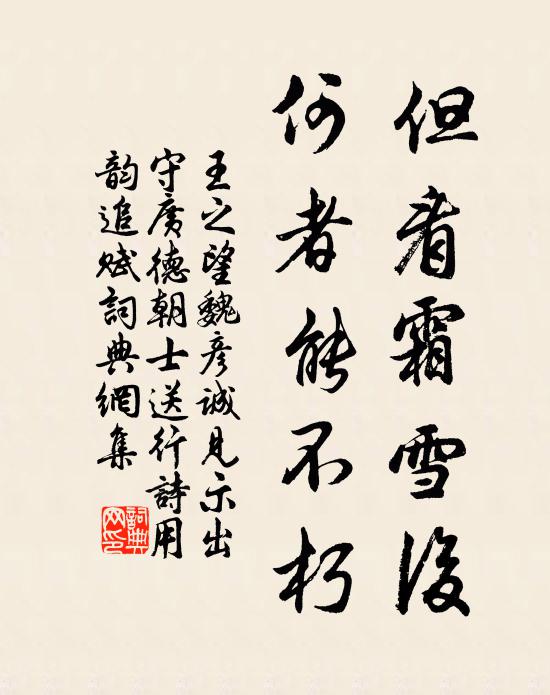 但看霜雪後
何者能不朽
王之望魏彥誠見示出
守廣德朝士送行詩用
韵追賦詞典網集
詞典
网印